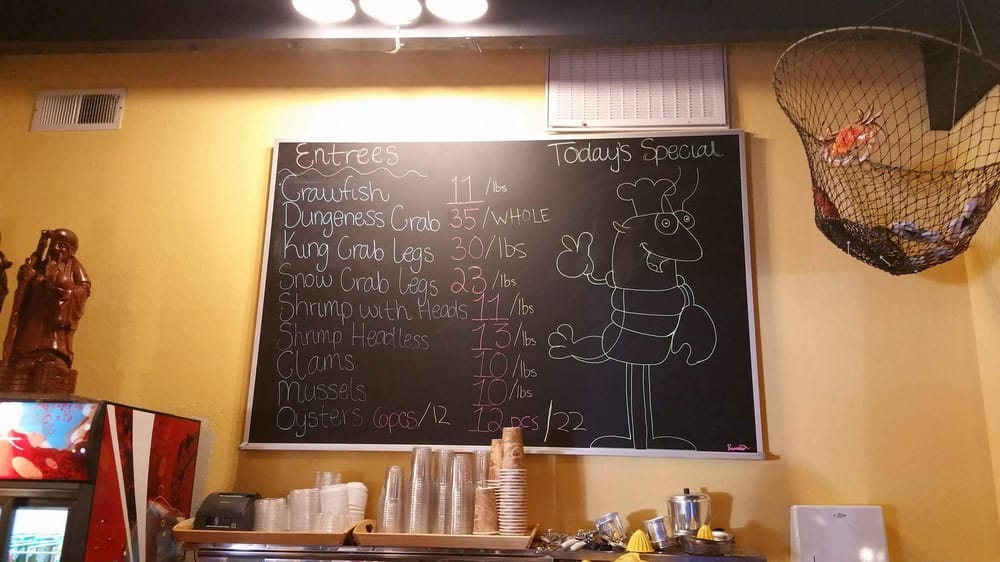 Entrees
Today's Special
Crawfish 11/lbs
Dungeness Crab 35/WHOLE
King Crab Legs 30/lbs
Snow Crab Legs 23/lbs
Shrimp with Heads 11/lbs
Shrimp Headless 13/lbs
Clams 10/lbs
Mussels 10/lbs
Oysters 6pcs/12 12pcs/22